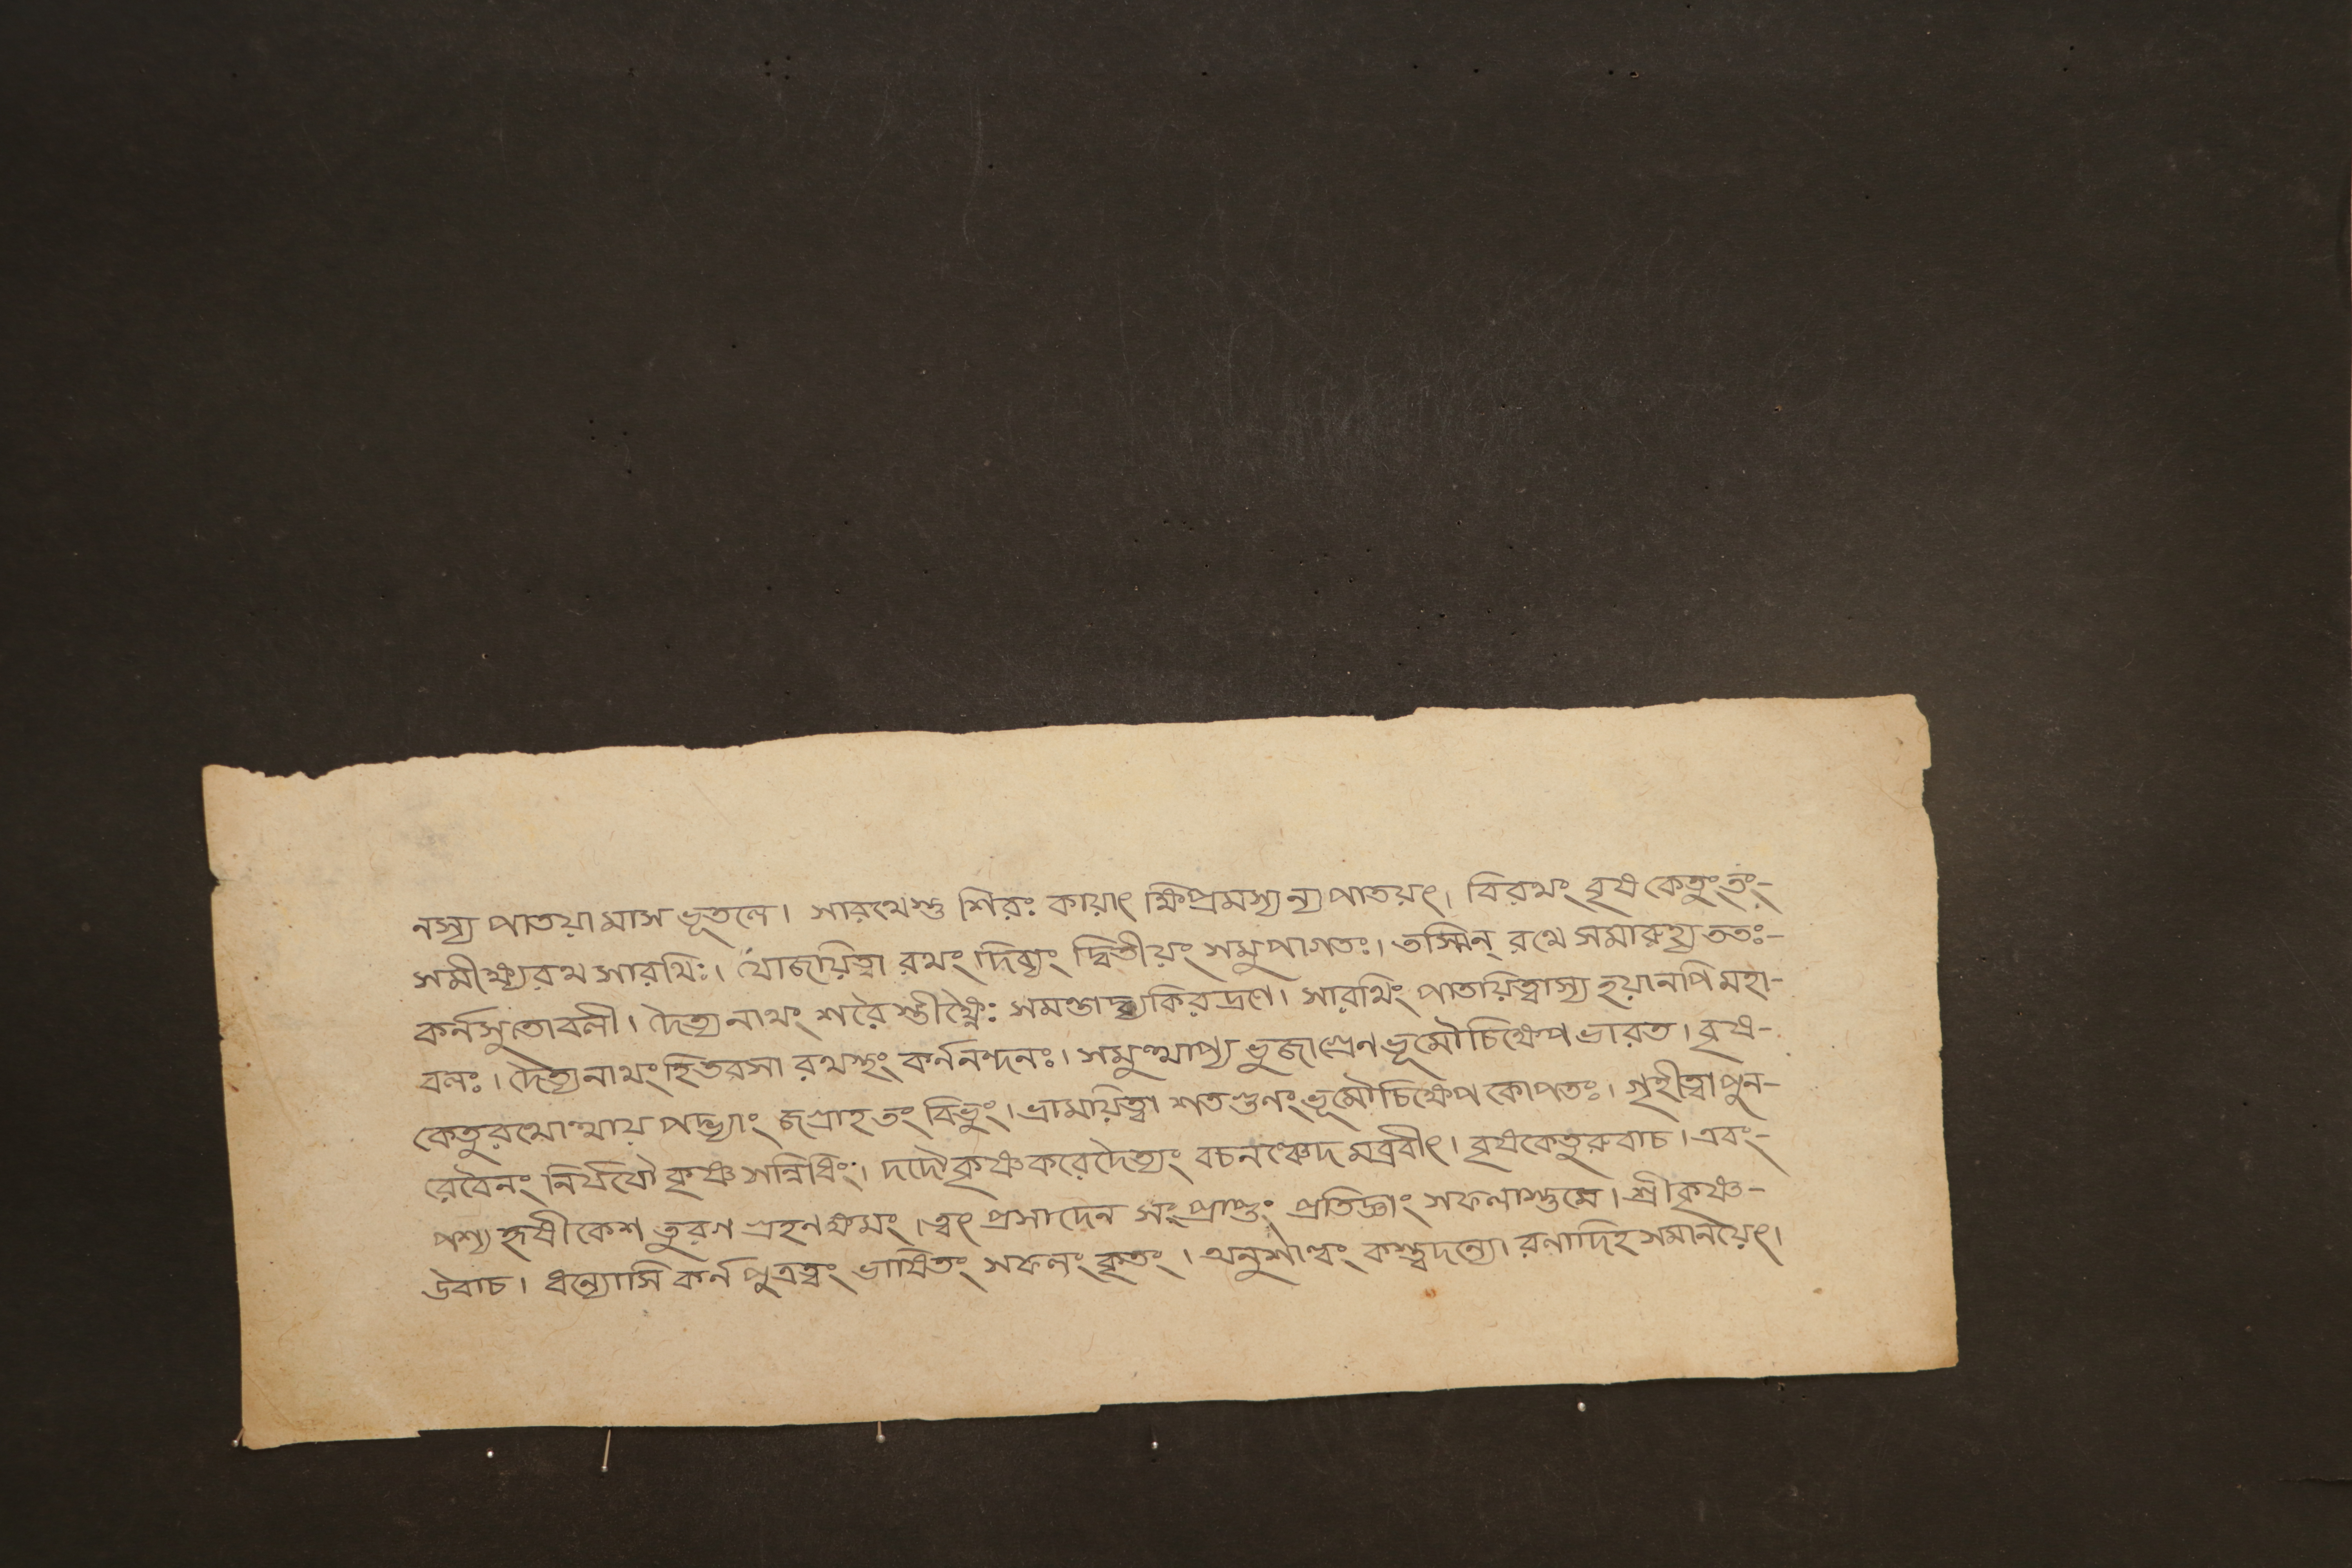 নস্য পাতয়ামাস ভূতলে। সারথেশু শিরঃ কায়াৎ ক্ষিপ্রমস্য ন্যপাতয়ৎ। বিরথং বৃষকেতুং তং-
সমীক্ষ্য রথ সারথিঃ। যোজয়িত্বা রথং দিব্যং দ্বিতীয়ং সমুপাগতঃ। তস্মিন্ রথে সমারুহ্য ততঃ-
কর্নসুতোবলী। দৈত্যনাথং শরৈস্তীক্ষ্ণৈঃ সমন্তাদ্ব্যকিরদ্রণে। সারথিং পাতয়িত্বাস্য হয়ানপি মহা-
বলঃ। দৈত্যনাথং হিতরসা রথস্থং কর্ননন্দনঃ। সমুত্থাপ্য ভুজাগ্রেন ভূমৌ চিক্ষেপ ভারত। বৃষ-
কেতুরথোত্থায় পদ্ভ্যাং জগ্রাহ তং বিভুং। ভ্রাময়িত্বা শতগুনং ভূমৌ চিক্ষেপ কোপতঃ। গৃহীত্বা পুন-
রেবৈনং নির্যযৌ কৃষ্ণ সন্নিধিং। দদৌ কৃষ্ণকরে দৈত্যং বচনঞ্চেদমব্রবীৎ। বৃষকেতুরুবাচ। এবং-
পশ্য হৃষীকেশ তুরগ গ্রহণক্ষমং। ত্বৎ প্রসাদেন সংপ্রাপ্তং প্রতিজ্ঞাং সফলাস্তুমে। শ্রীকৃষ্ণ-
উবাচ। ধন্যোসি কর্ন পুত্রত্বং ভাষিতং সফলং কৃতং। অনুশাল্বং কস্ত্বদন্যো রনাদিহ সমানয়েৎ।